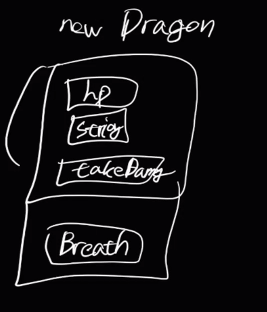 new Dragon
hp
string
takeDamg
Breath